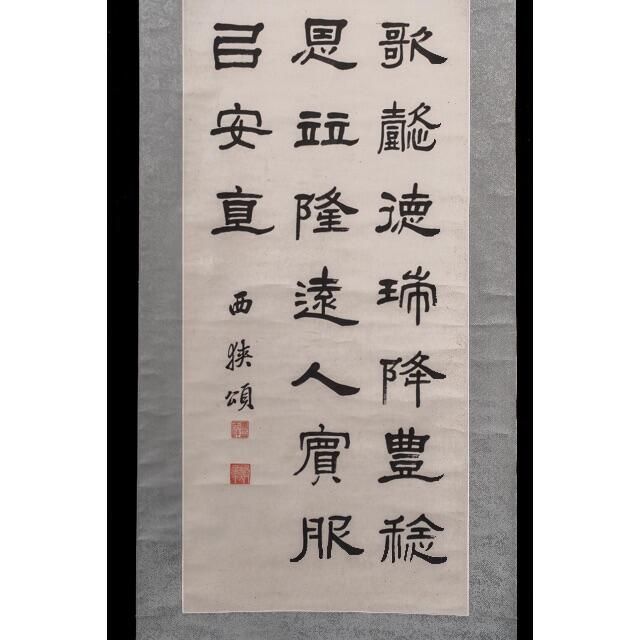 歌懿德瑞降豊稔
恩竝隆遠人賓服
㠯安直
西狹頌